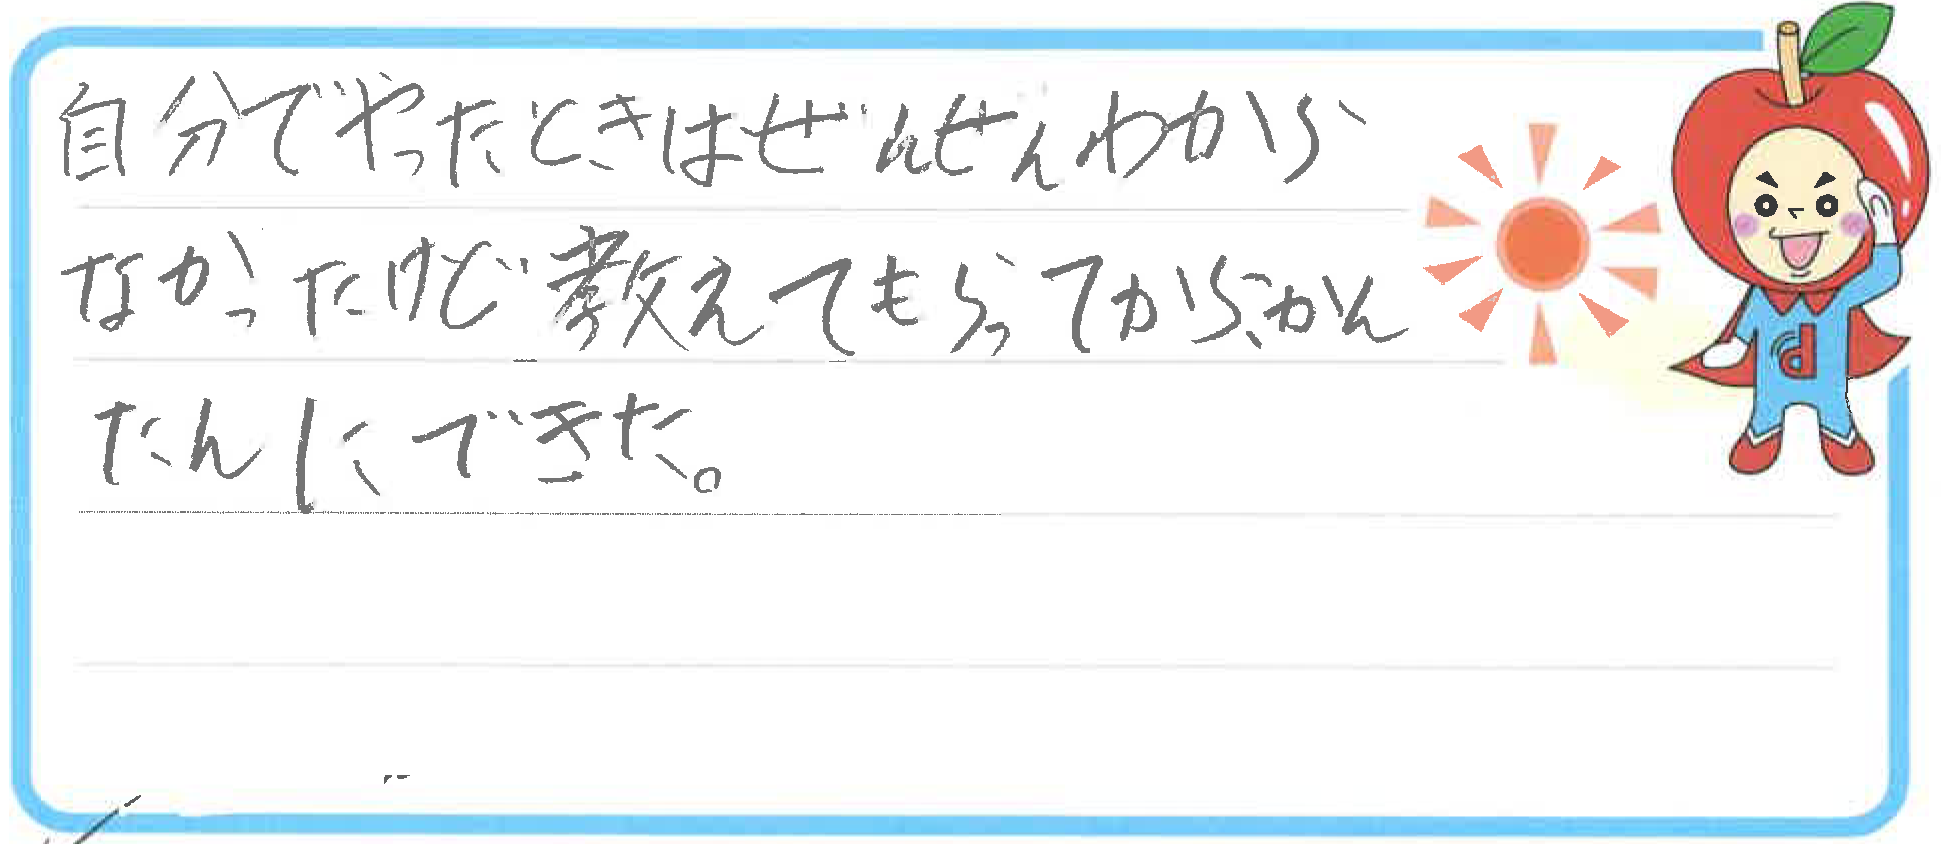 自分でやったときはぜんぜんわから
なかったけど教えてもらってから、かん
たんにできた。
d